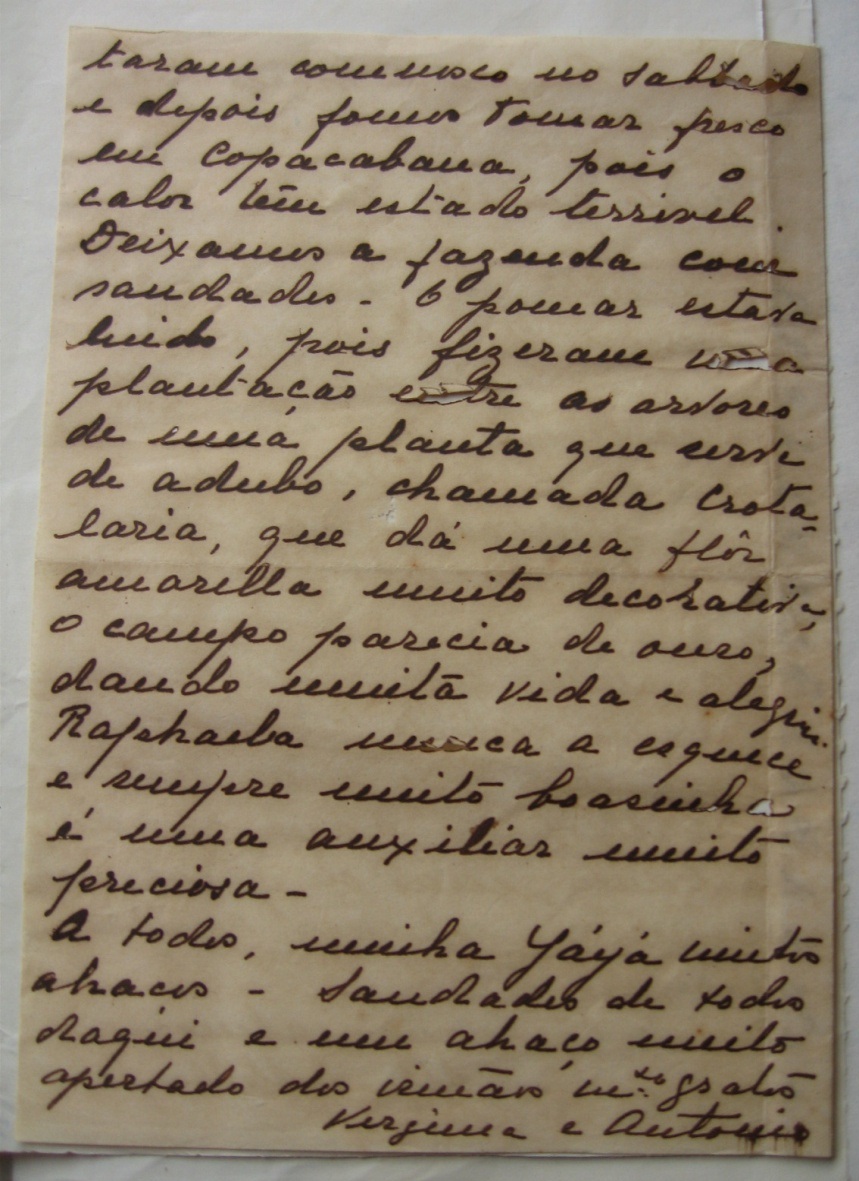 taram comnosco no sabbado
e depois fomos tomar fresco
em Copacabana, pois o
calor têm estado terrivel.
Deixamos a fazenda com
saudades - O pomar estava
lindo, pois fizeram uma
plantação entre as arvores
de uma planta que serve
de adubo, chamada Crota-
laria, que dá uma flôr
amarella muito decorativa,
o campo parecia de ouro,
dando muita vida e alegria.
Raphaela nunca a esquece
e sempre muito boasinha
é uma auxiliar muito
preciosa -
A todos, minha Yáyá muitos
abraços - Saudades de todos
daqui e um abraço muito
apertado dos irmãos mto gratos
Verginia e Antonio